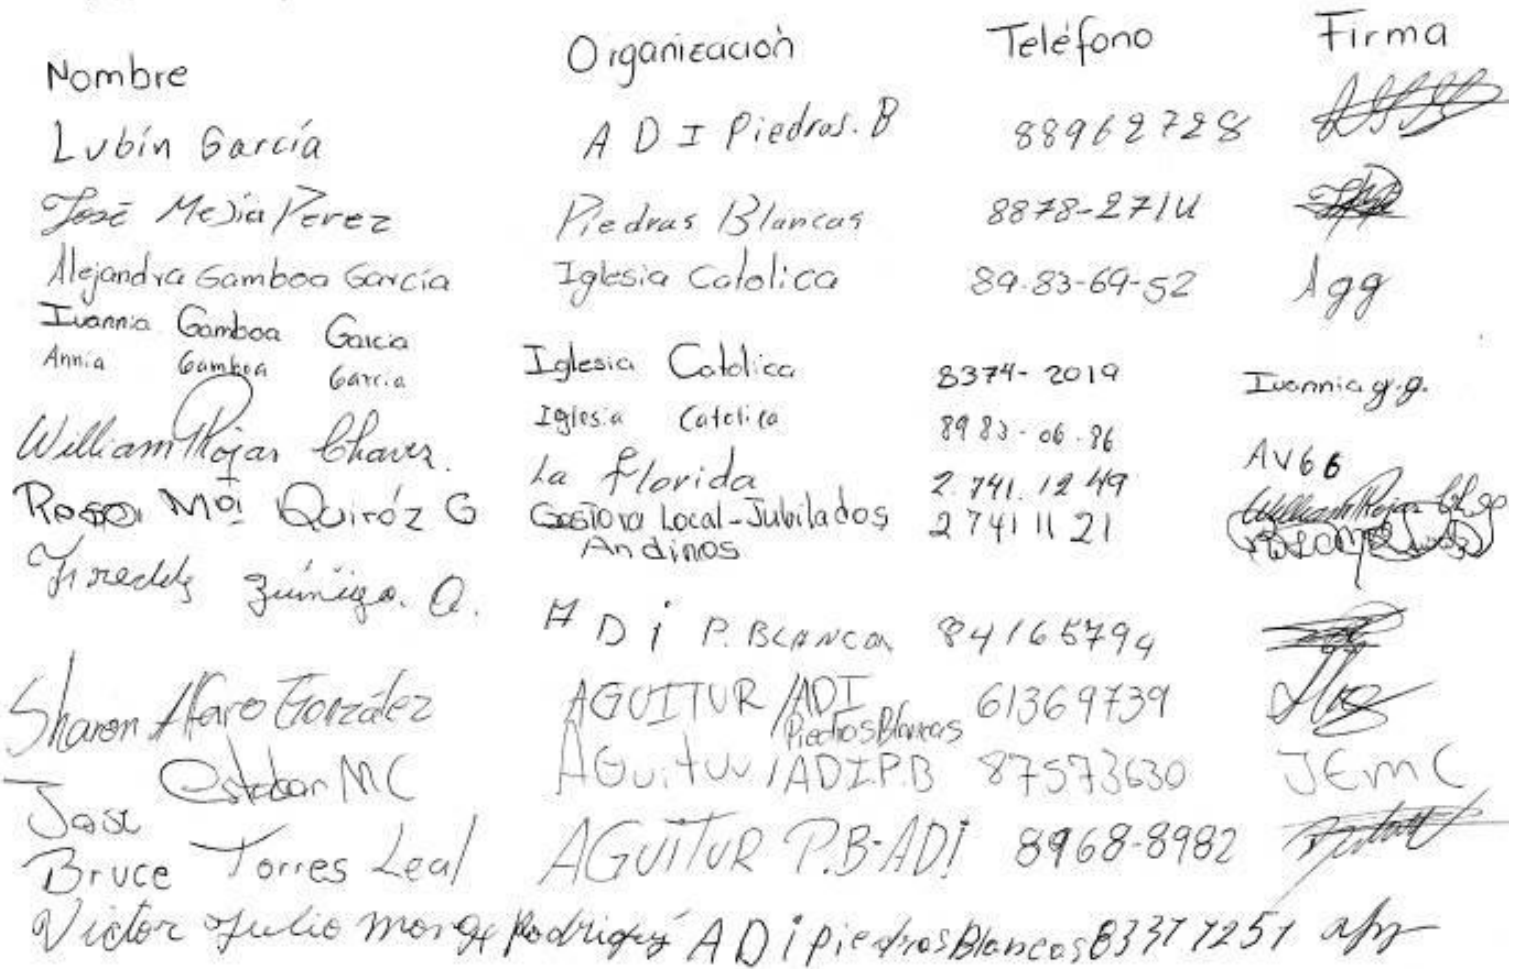 Nombre Organización Teléfono Firma
Lubín García A D I Piedras. B 88962728
José Mejía Perez Piedras Blancas 8878-2714
Alejandra Gamboa García Iglesia Catolica 89-83-69-52 Agg
Ivannia Gamboa Garcia Iglesia Catolica 8374-2019 Ivannia g.g.
Annia Gamboa Garcia Iglesia Catolica 8983-06-86 AVGG
William Rojas Chaves. La Florida 2.741.12 49 William Rojas
Rosa Mª Quiróz G Gestora Local-Jubilados 2 741 11 21
Andinos
Freddy Zúñiga. Q. A D i P. BLANCA 84165794
Sharon Alfaro González AGUITUR /ADI 61369739
Piedras Blancas
José Esteban MC AGuitur /ADI.P.B 87573630 JEMC
Bruce Torres Leal AGUITUR P.B-ADI 8968-8982
Victor Julio Monge Rodríguez A D i piedras Blancas 83377251